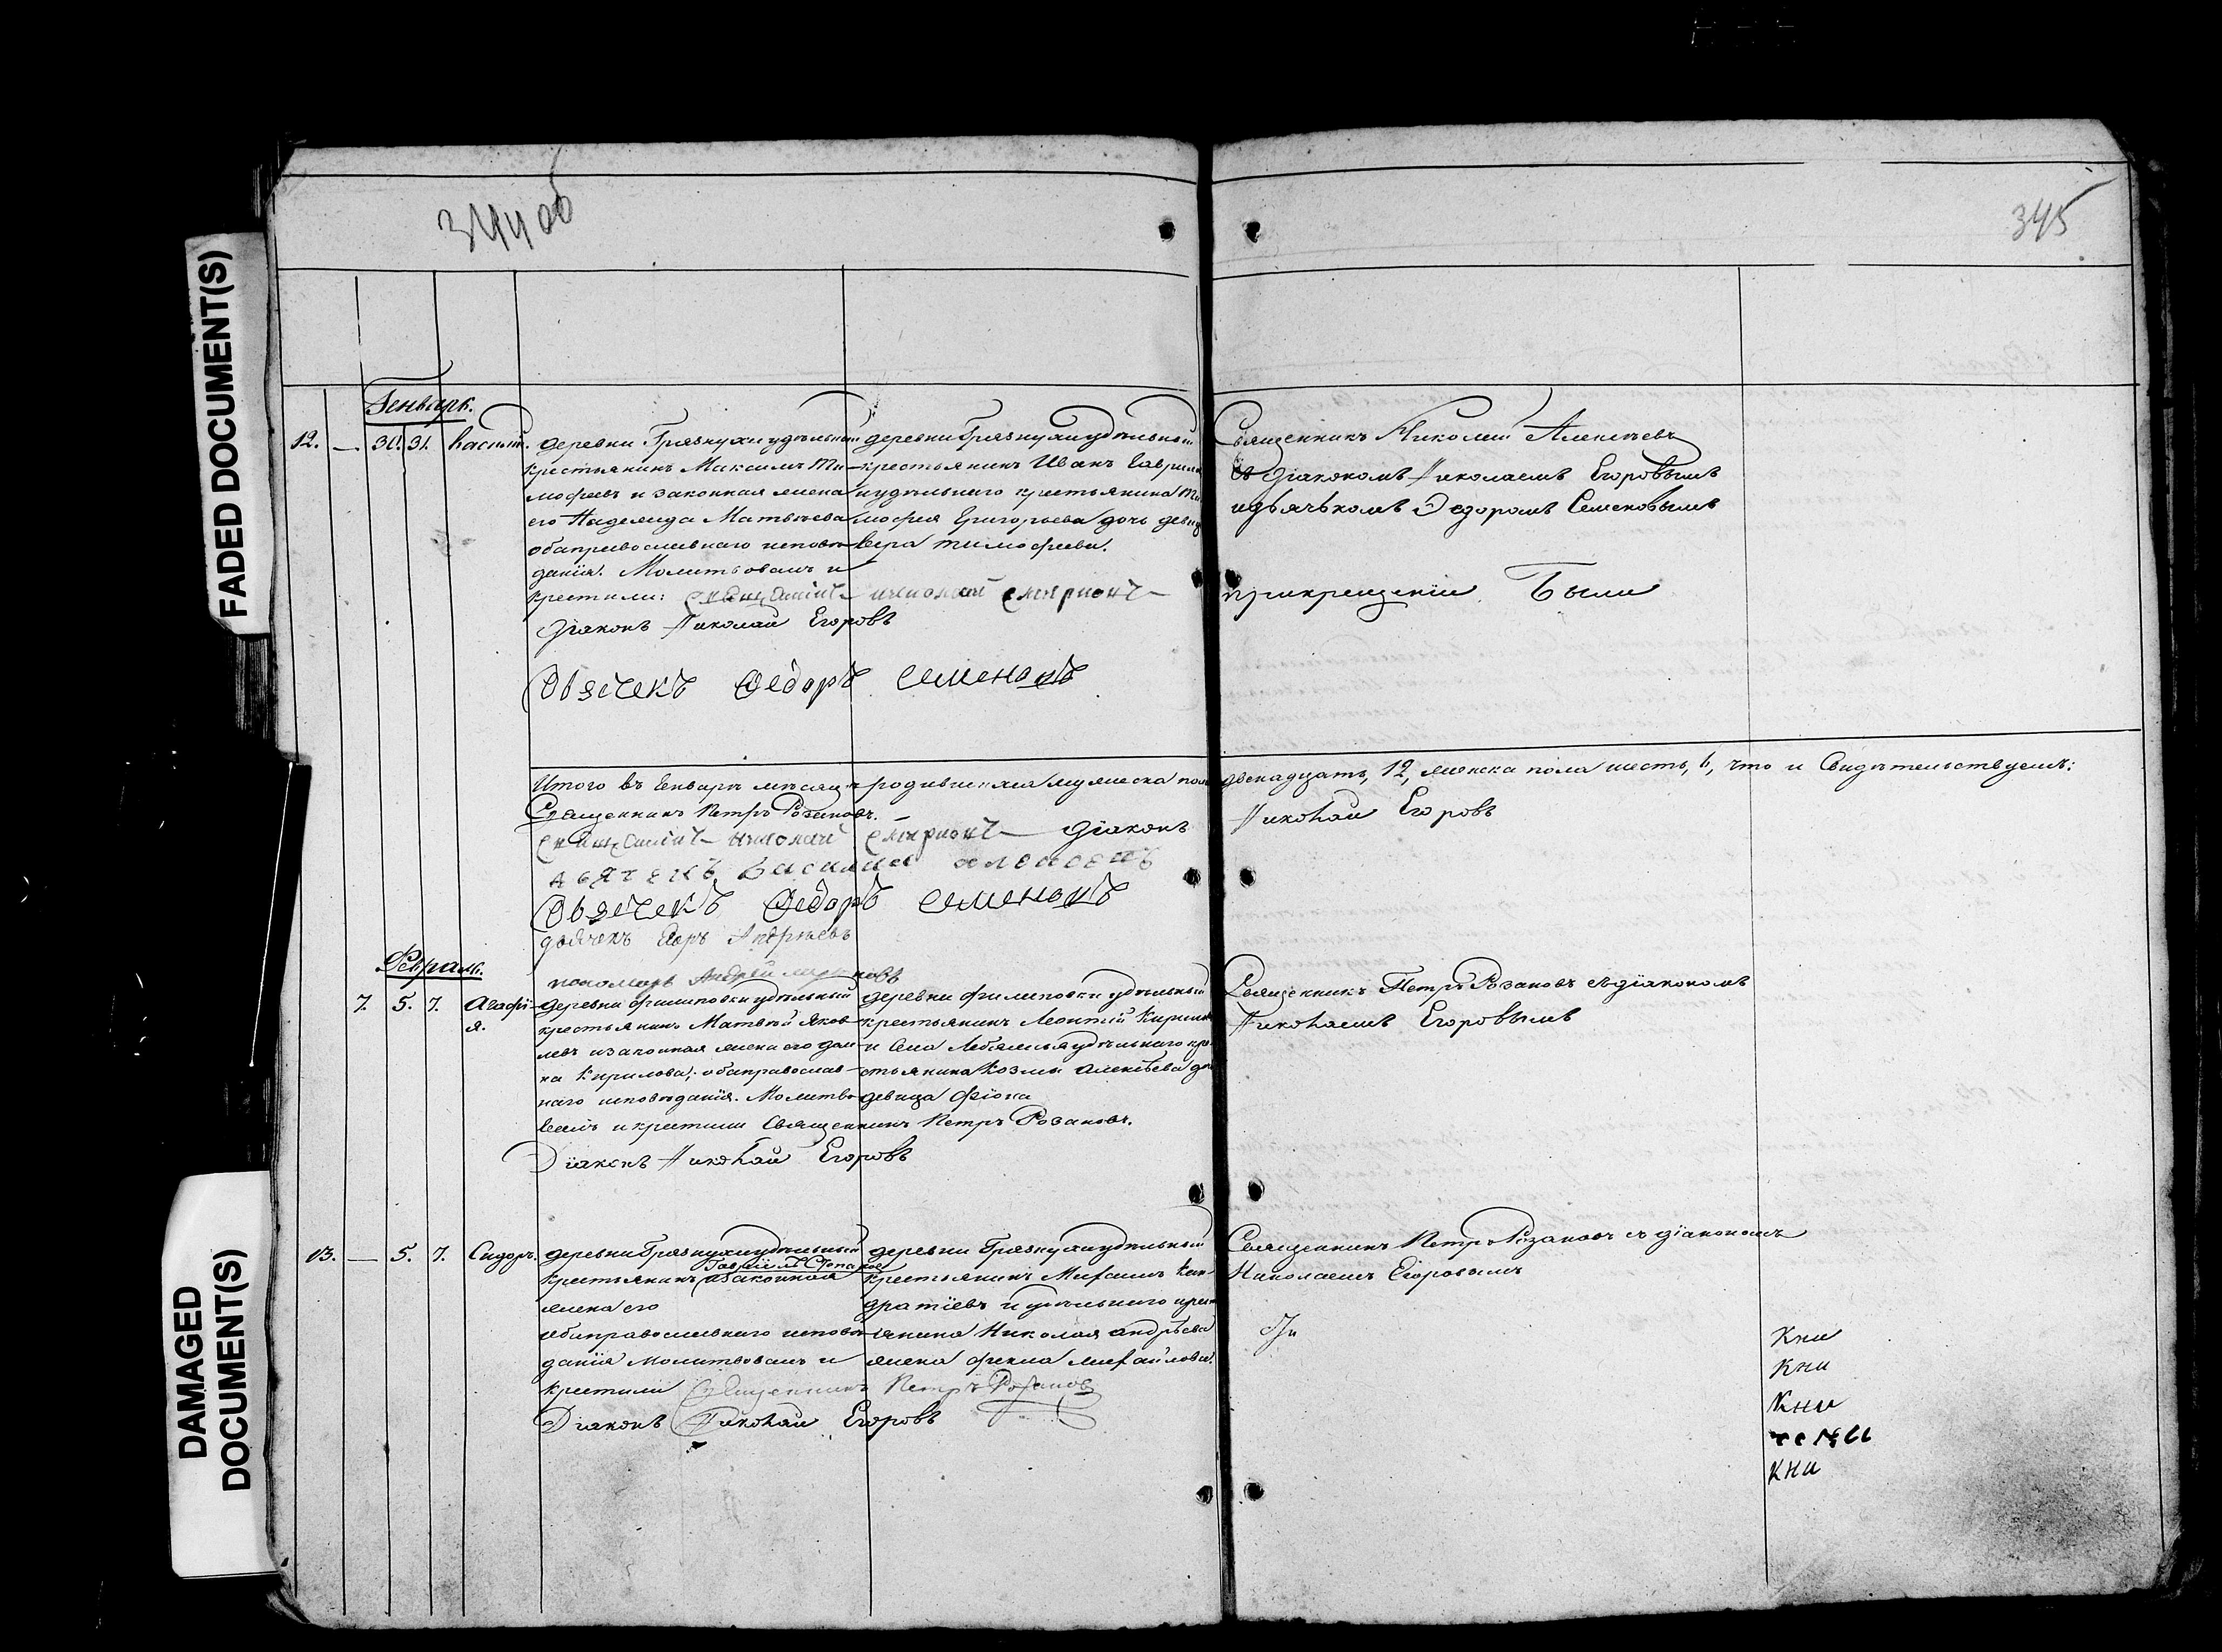 FADED DOCUMENT(S)
DAMAGED DOCUMENT(S)
344 об
345
Генварь.
12. — 31. 31.
деревни Грязнухи удѣльный
крестьянинъ Максимъ Ти-
мофеевъ и законная жена
его Надежда Матвѣева
оба православнаго исповѣ-
данія. Молитвовалъ и
крестили: Священникъ Николай
Діаконъ Николай Егоровъ
Дьячекъ Федоръ Семеновъ
деревни Грязнухи удѣльный
крестьянинъ Иванъ Гаврило
и удѣльнаго крестьянина Ти
мофея Григорьева дочь девиц
Вера тимофеева.
Священникъ Николай Алексѣевъ
съ діакономъ Николаемъ Егоровымъ
и дьячькомъ Федоромъ Семеновымъ
при крещеніи Были
Итого въ Генварѣ мѣсяцѣ родившихся мужеска пола двенадцать, 12, женска пола шесть, 6, что и Свидѣтельствуемъ:
Священникъ Петръ Розановъ.
Николай Діаконъ Николай Егоровъ
дьячекъ Василий
Дьячекъ Федоръ Семеновъ
дьячекъ Егоръ Андрѣевъ
пономарь Андрей
Февраль.
7. 5. 7. Агафі-
я.
деревни Филиповки удѣльный
крестьянинъ Матвѣй Яков-
левъ и законная жена его дом-
на Кирилова; оба православ-
наго исповѣданія. Молитво-
валъ и крестили Священникъ Петръ Розановъ.
Діаконъ Николай Егоровъ
деревни Филиповки удѣльный
крестьянинъ Леонтий Кирил
и Села Лебяжья удѣльнаго кре
стьянина Козмы Алексѣева до
девица Фіона
Священникъ Петръ Розановъ съ діакономъ
Николаемъ Егоровымъ
13. — 5. 7. Сидоръ.
деревни Грязнухи удѣльный
Гаврiилъ Степанов
крестьянинъ и законная
жена его
оба православнаго исповѣ-
данія молитвовалъ и
крестили Священникъ Петръ Розанов
Діаконъ Николай Егоровъ
деревни Грязнухи удѣльный
крестьянинъ Михаилъ Кон-
дратіевъ и удѣльнаго крест
янина Николая андрѣева
жена фекла михайлова.
Священникъ Петръ Розановъ съ діакономъ
Николаемъ Егоровымъ
Кни
Кни
Кни
Кни